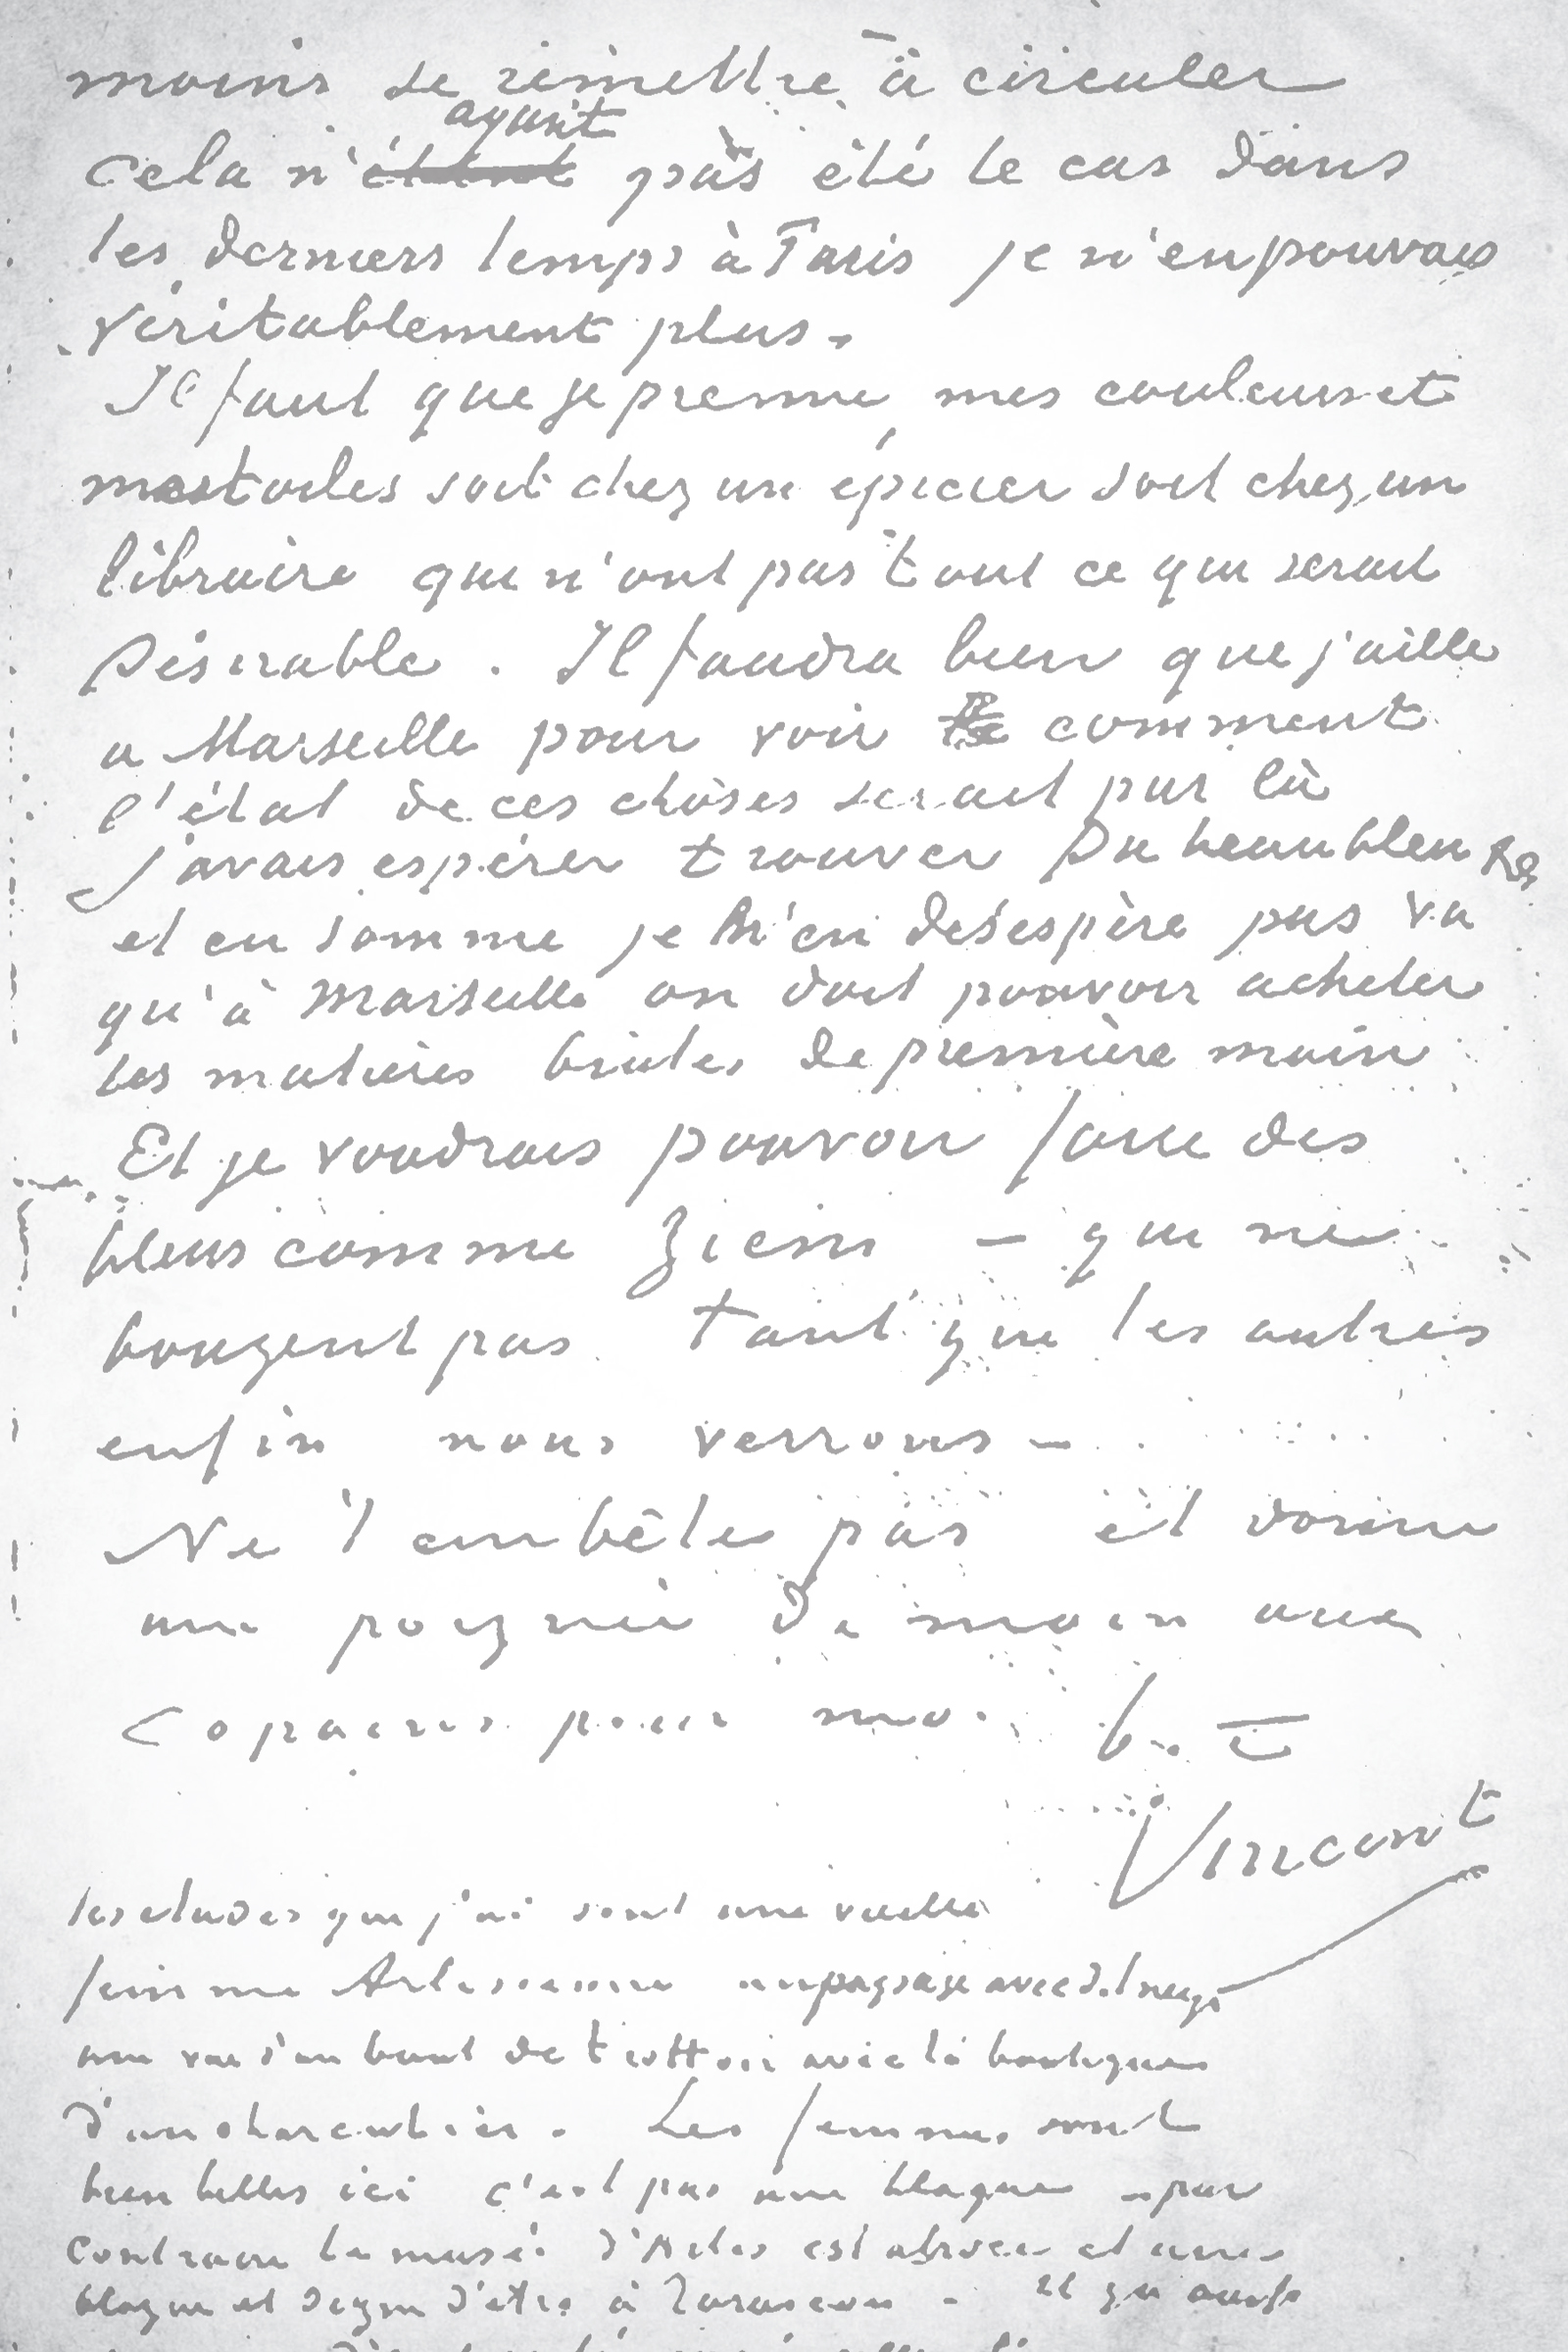 moins se remettre à circuler
cela n'étant ayant pas été le cas dans
les derniers temps à Paris je n'en pouvais
véritablement plus.
Il faut que je prenne mes couleurs et
mes toiles soit chez un épicier soit chez un
libraire qui n'ont pas tout ce qui serait
désirable. Il faudra bien que j'aille
a Marseille pour voir comment
l'état de ces choses serait par là
j'avais espérer trouver du beau bleu
et en somme je n'en désespère pas vu
qu'à Marseille on doit pouvoir acheter
les matières brutes de première main
Et je voudrais pouvoir faire des
bleus comme Ziem – qui ne
bougent pas tant que les autres
enfin nous verrons –
Ne t'embêtes pas et donne
une poignée de main aux
copains pour moi. b. t.
Vincent
les etudes que j'ai sont une vieille
femme Arlesienne un paysage avec de la neige
une vue d'un bout de trottoir avec la boutique
d'un charcutier. Les femmes sont
bien belles ici c'est pas une blague – par
contre le musée d'Arles est atroce et une
blague et digne d'être à Tarascon – il y a aussi